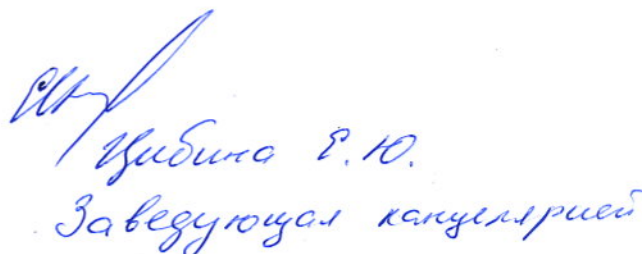 Цибина Е.Ю.
Заведующая канцелярией